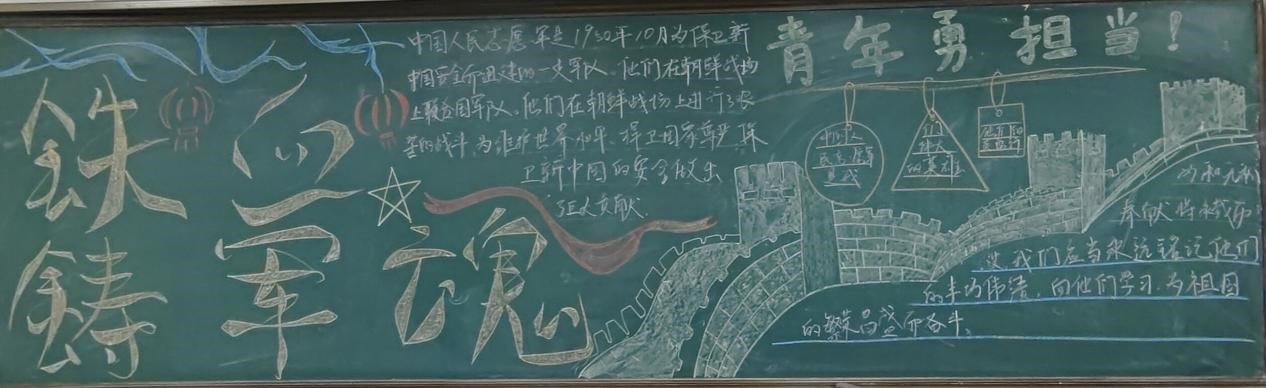 铁血
铸军魂
中国人民志愿军是1950年10月为保卫新
中国安全所组建的一支军队。他们在朝鲜战场
上联合国军队。他们在朝鲜战场上进行了艰
苦的战斗,为维护世界和平、捍卫国家尊严、保
卫新中国的安全做出
了巨大贡献.
青年勇担当!
中国人
民志愿军
的英雄
奉献精神而
我们应当永远铭记他们
的丰功伟绩,向他们学习,为祖国
的繁荣昌盛而奋斗。